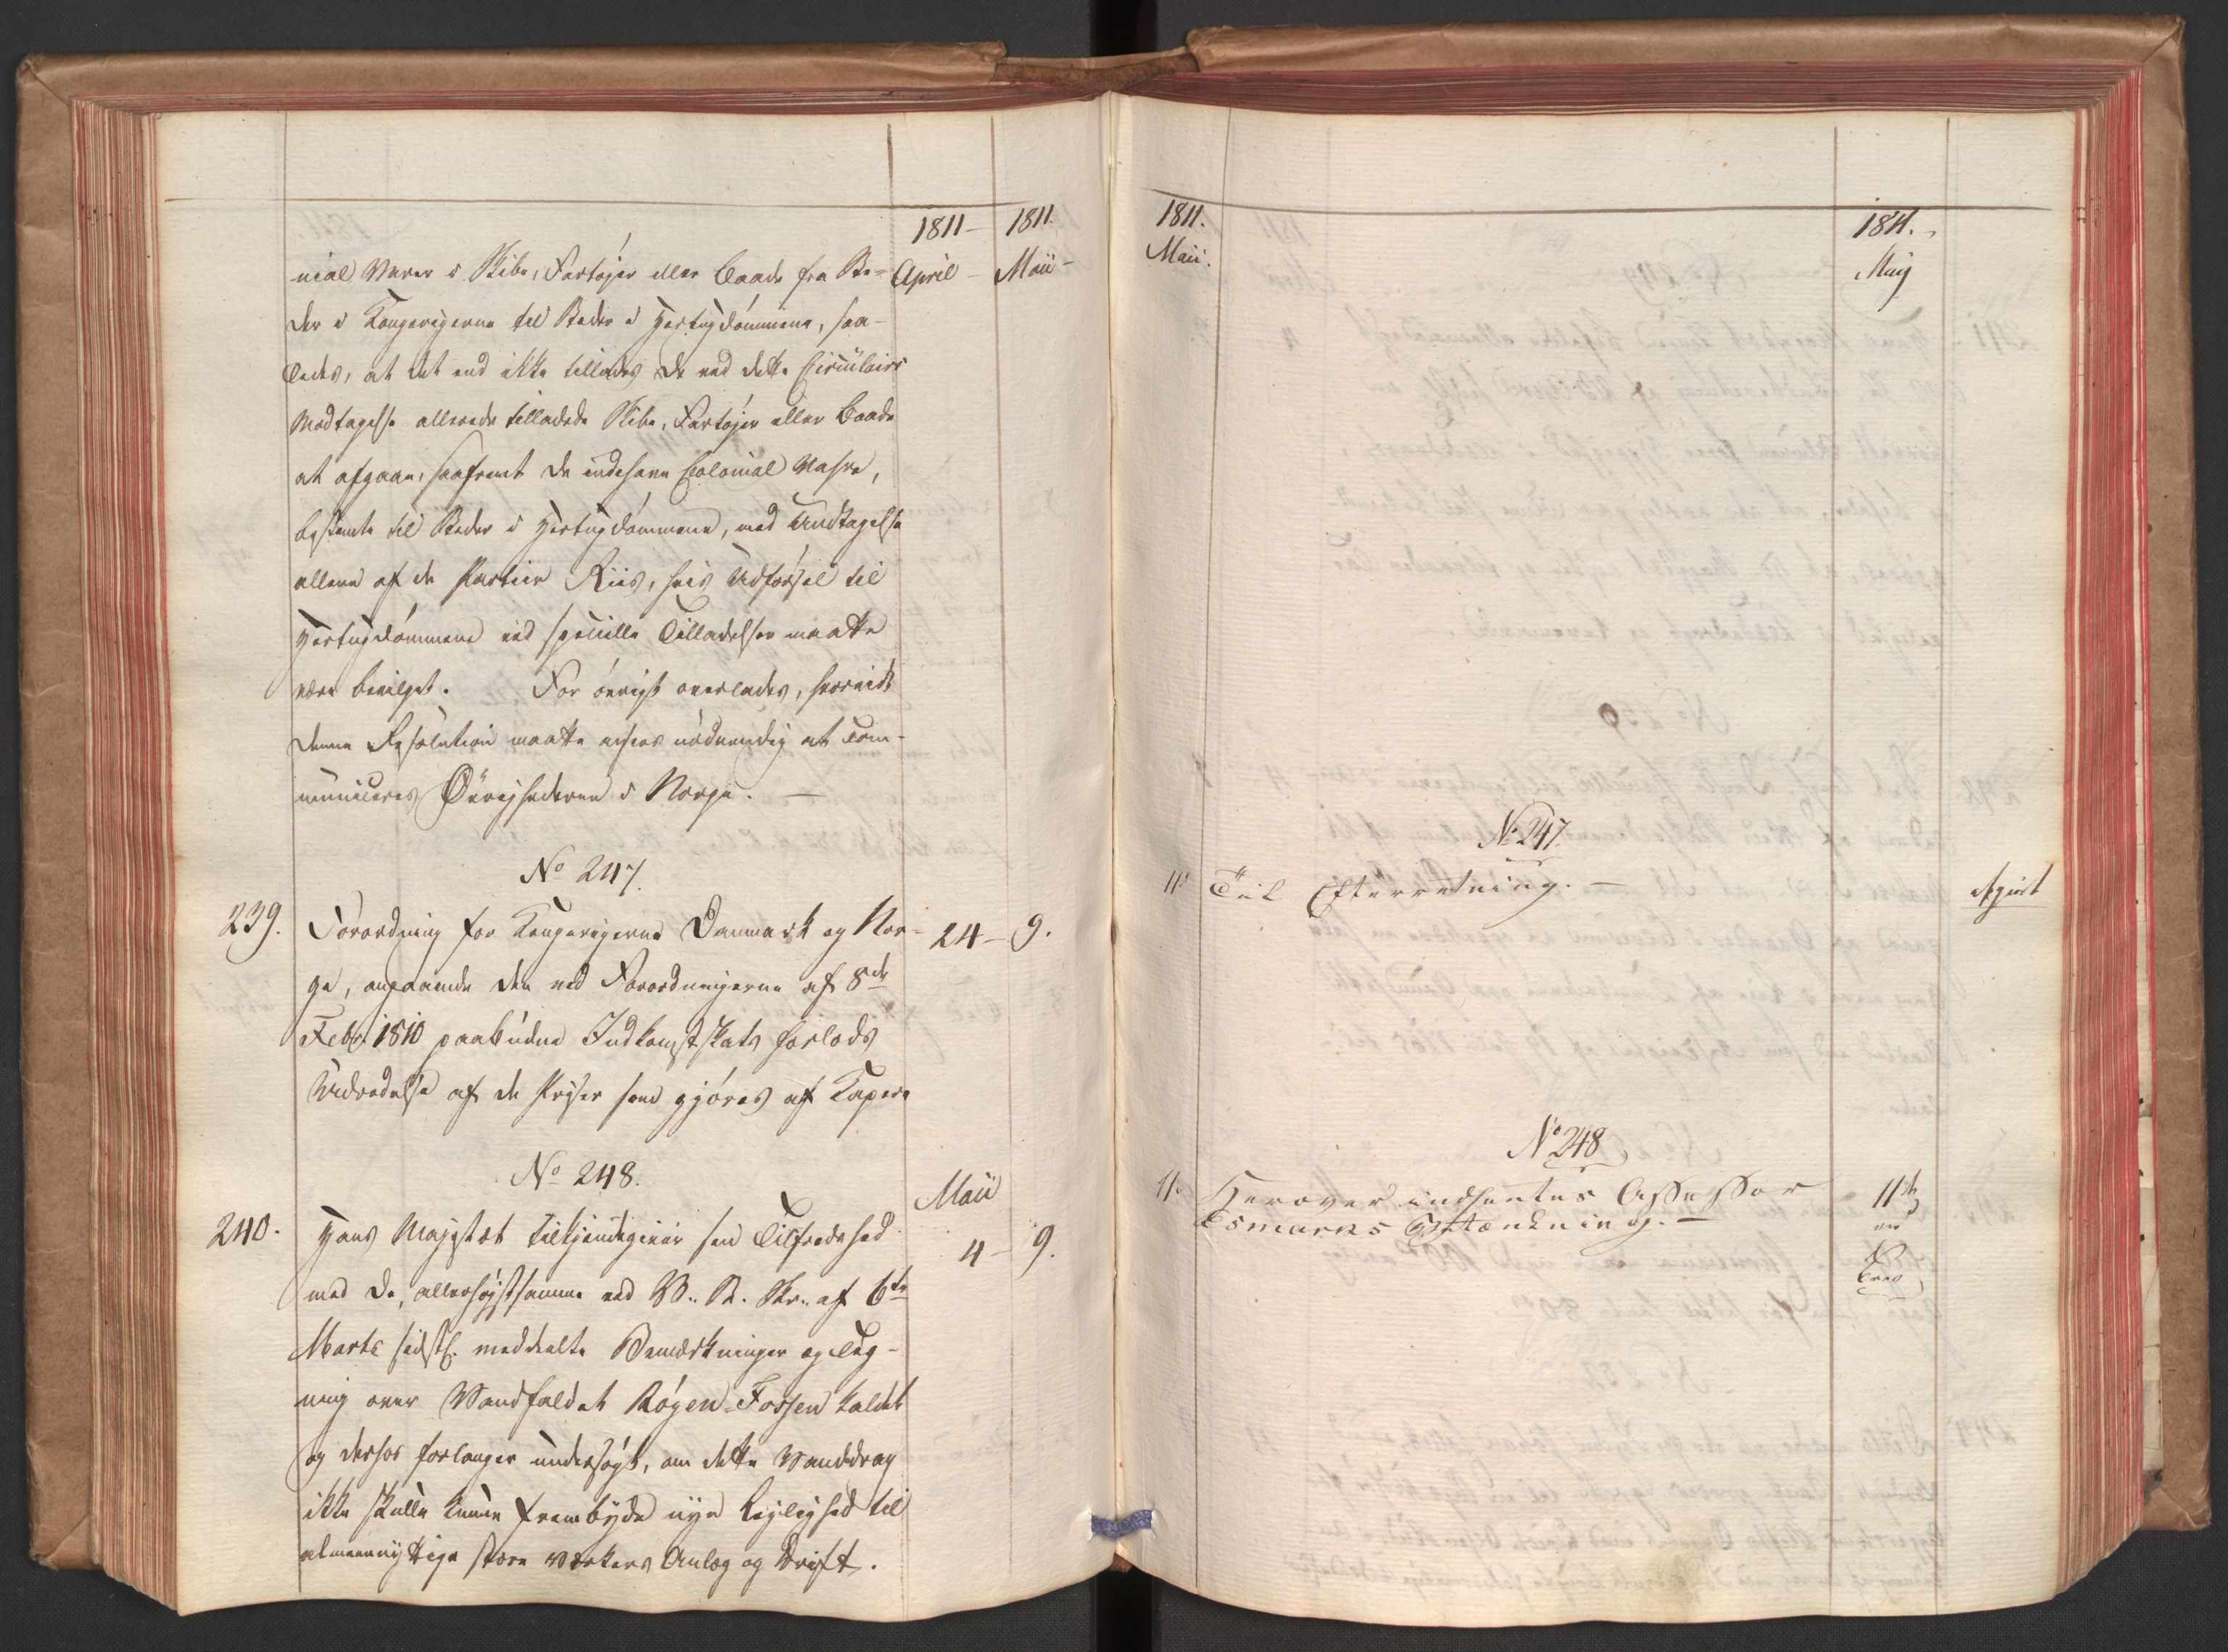 1811 - 1811.
April - Maii -
nial Varer i Skibe, Fartøjer eller Baade fra Ste-
der i Kongerigerne til Steder i Hertugdømmene, saa-
ledes, at det end ikke tillades de ved dette Circulairs
Modtagelse allerede tilladede Skibe, Fartøjer eller Baade
at afgaae, saafremt de indehave Colonial Vahre,
bestemte til Steder i Hertugdømmene, med Undtagelse
allene af de Partier Riis, hvis Udførsel til
Hertugdømmene ved specielle Tilladelser maatte
være bevilget. For øvrigt overlades, hvorvidt
denne Resolution maatte ansees nødvendig at com-
municeres Øvrighederne i Norge. —
No 247.
239. Forordning for Kongerigerne Danmark og Nor- 24 - 9.
ge, angaaende den ved Forordningerne af 8de
Febr 1810 paabudne Indkomstskats forlods
Udredelse af de Priser som gjøres af Kapere
No 248.
Maii
240. Hans Majestæt tilkjendegiver sin Tilfredshed 4 - 9.
med de, allerhøjstsamme ved  af 6te
Marts sidstl. meddeelte Bemærkninger og Teg-
ning over Vandfaldet Rógen-Fossen kaldet
og derhos forlanger undersøgt, om dette Vanddrag
ikke skulle kunne frembyde nye Leylighed til
almeennyttige store Værkers Anlæg og Drift.
1811. 1811.
Maii. Maij
No 247.
11. Til Efterretning. — Afgiort
No 248
11. Herover indhentes Assessor 11te
Esmarks Betænkning. —